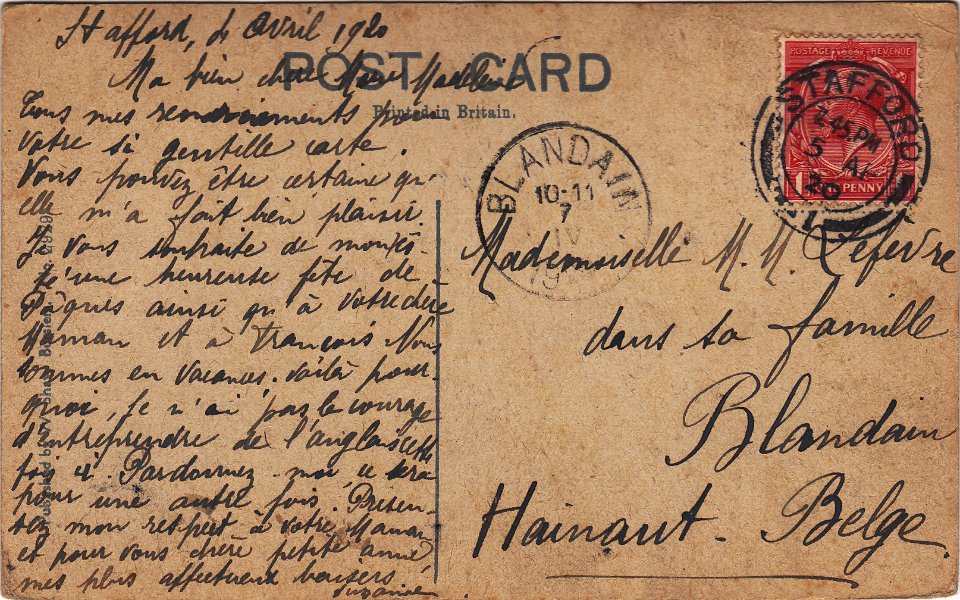 Stafford, 4 Avril 1920
POST CARD
Printed in Britain.
Ma bien chère Marie Madeleine
Tous mes remerciements pour
votre si gentille carte.
Vous pouvez être certaine qu'
elle m'a fait bien plaisir.
Je vous souhaite de
une heureuse fête de
Pâques ainsi qu'à votre chère
Maman et à François. Nous
sommes en vacances. Voilà pour-
quoi, je n'ai pas le courage
d'entreprendre de l'anglais cette
fois ci. Pardonnez-moi ce sera
pour une autre fois. Présen-
tez mon respect à votre Maman
et pour vous chère petite amie
mes plus affectueux baisers.
Suzanne
POSTAGE REVENUE
1 PENNY
STAFFORD
2.45 PM
5 AP
20
BLANDAIN
10-11
7
IV
Mademoiselle M. M. Lefevre
dans sa famille
Blandain
Hainaut. Belge.